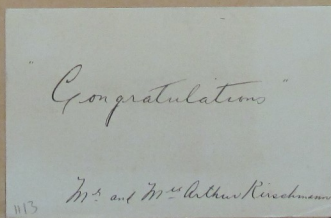 "Congratulations"
Mr and Mrs Arthur Kirschmann
1113